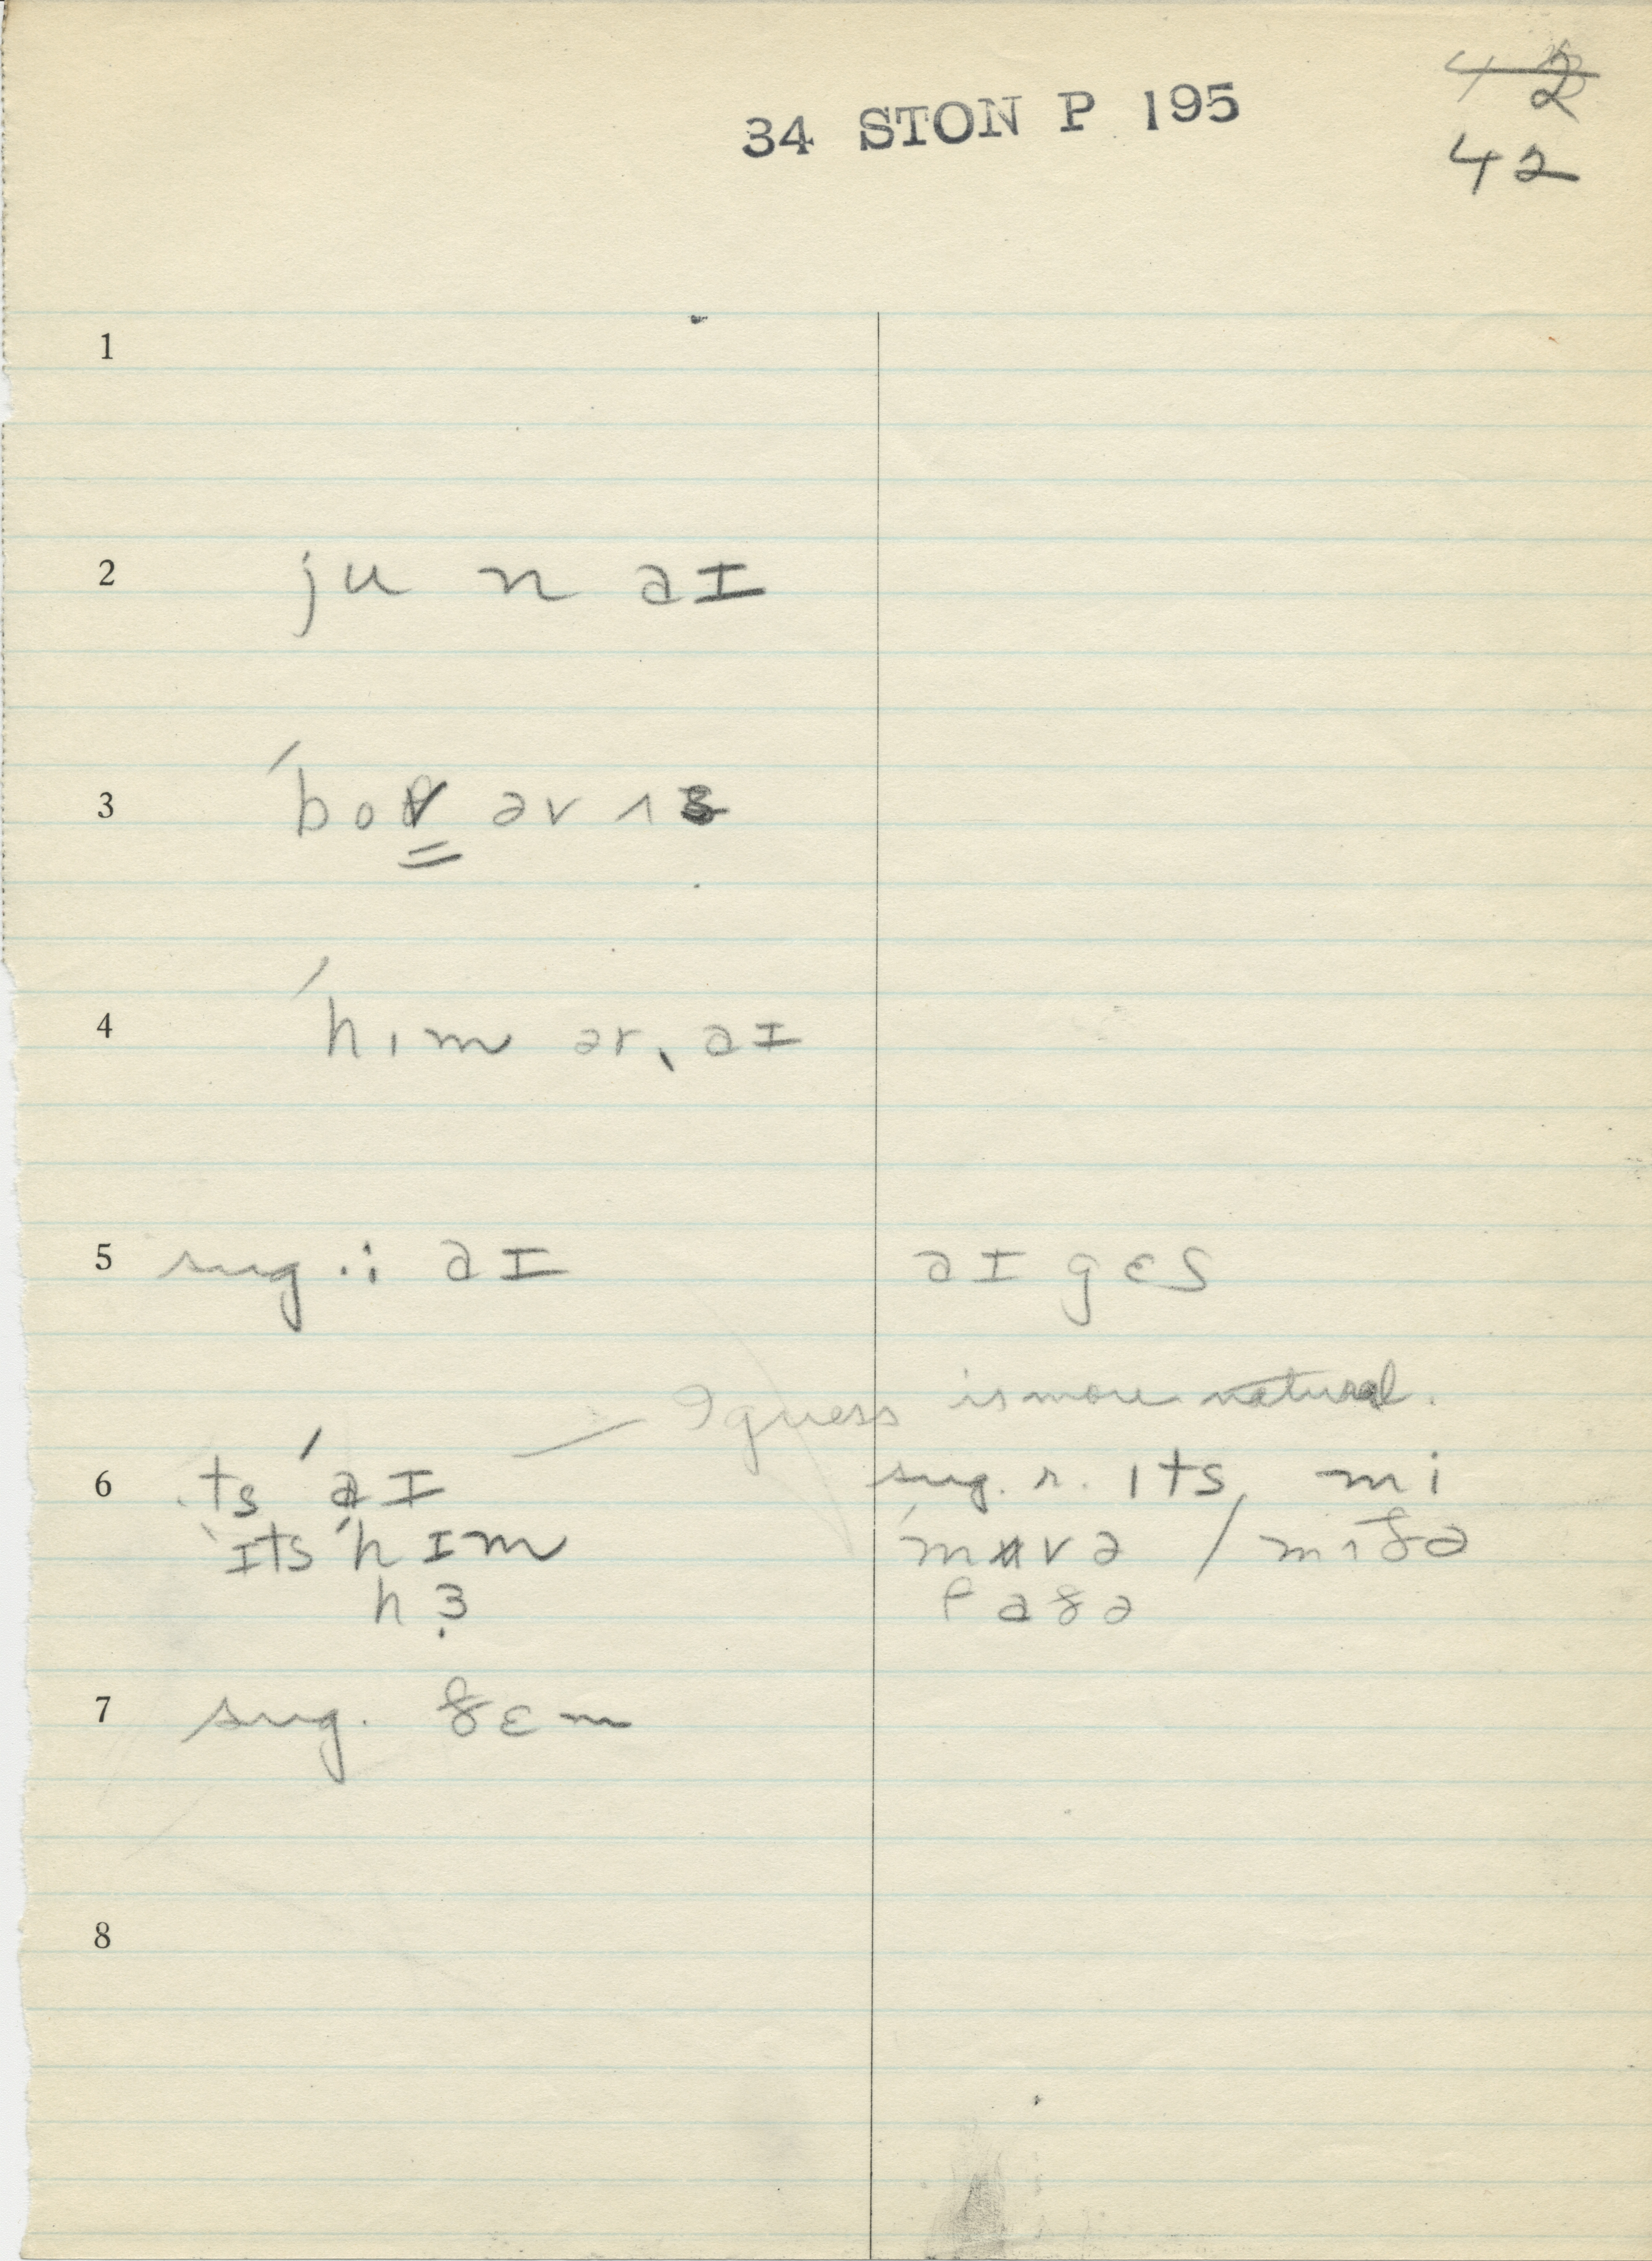 34 STON P 195
42
42
1
2 ju n aɪ
3 ˈboθ əv ʌs
4 ˈhɪm ər, aɪ
5 sug. : aɪ aɪ gɛs
— I guess is more natural.
6 ɪts ˈaɪ sug. r. ɪts mi
ɪts ˈhɪm ˈmʌvə / mʌðə
hɜ faðə
7 sug. ðɛm
8